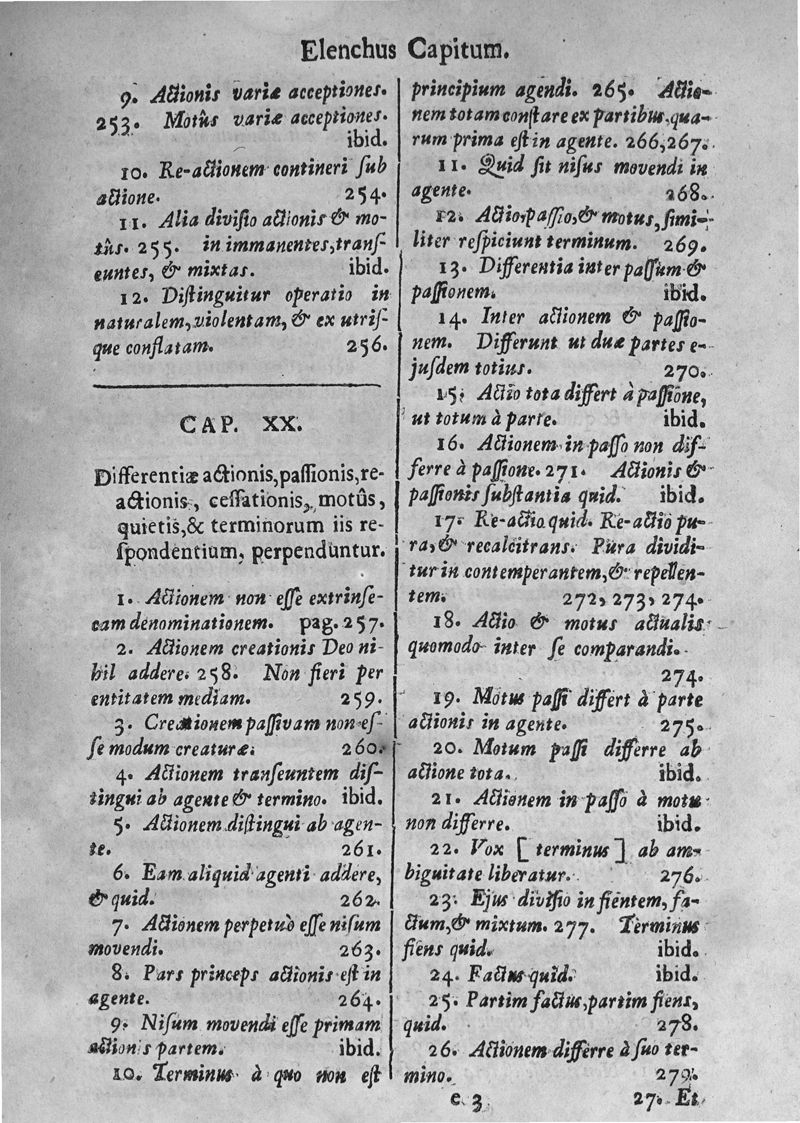 Elenchus Capitum.
9. Actionis variæ acceptiones.
253. Motûs variæ acceptiones.
ibid.
10. Re-actionem contineri ſub
actione. 254.
11. Alia diviſio actionis & mo-
tûs. 255. in immanentes, tranſ-
euntes, & mixtas. ibid.
12. Diſtinguitur operatio in
naturalem, violentam, & ex utriſ-
que conflatam. 256.
CAP. XX.
Differentiæ actionis, paſſionis, re-
actionis, ceſſationis, motûs,
quietis, & terminorum iis re-
ſpondentium, perpenduntur.
1. Actionem non eſſe extrinſe-
cam denominationem. pag. 257.
2. Actionem creationis Deo ni-
hil addere. 258. Non fieri per
entitatem mediam. 259.
3. Creationem paſſivam non eſ-
ſe modum creaturæ. 260.
4. Actionem tranſeuntem diſ-
tingui ab agente & termino. ibid.
5. Actionem diſtingui ab agen-
te. 261.
6. Eam aliquid agenti addere,
& quid. 262.
7. Actionem perpetuò eſſe niſum
movendi. 263.
8. Pars princeps actionis eſt in
agente. 264.
9. Niſum movendi eſſe primam
actionis partem. ibid.
10. Terminus à quo non eſt
principium agendi. 265. Actio-
nem totam conſtare ex partibus, qua-
rum prima eſt in agente. 266, 267.
11. Quid ſit niſus movendi in
agente. 268.
12. Actio, paſſio, & motus, ſimi-
liter reſpiciunt terminum. 269.
13. Differentia inter paſſum &
paſſionem. ibid.
14. Inter actionem & paſſio-
nem. Differunt ut duæ partes e-
juſdem totius. 270.
15. Actio tota differt à paſſione,
ut totum à parte. ibid.
16. Actionem in paſſo non dif-
ferre à paſſione. 271. Actionis &
paſſionis ſubſtantia quid. ibid.
17. Re-actio quid. Re-actio pu-
ra, & recalcitrans. Pura dividi-
tur in contemperantem, & repellen-
tem. 272, 273, 274.
18. Actio & motus actualis
quomodo inter ſe comparandi.
274.
19. Motus paſſi differt à parte
actionis in agente. 275.
20. Motum paſſi differre ab
actione tota. ibid.
21. Actionem in paſſo à motu
non differre. ibid.
22. Vox [ terminus ] ab am-
biguitate liberatur. 276.
23. Ejus diviſio in fientem, fa-
ctum, & mixtum. 277. Terminus
fiens quid. ibid.
24. Factus quid. ibid.
25. Partim factus, partim fiens,
quid. 278.
26. Actionem differre à ſuo ter-
mino. 279.
e 3 27. Et